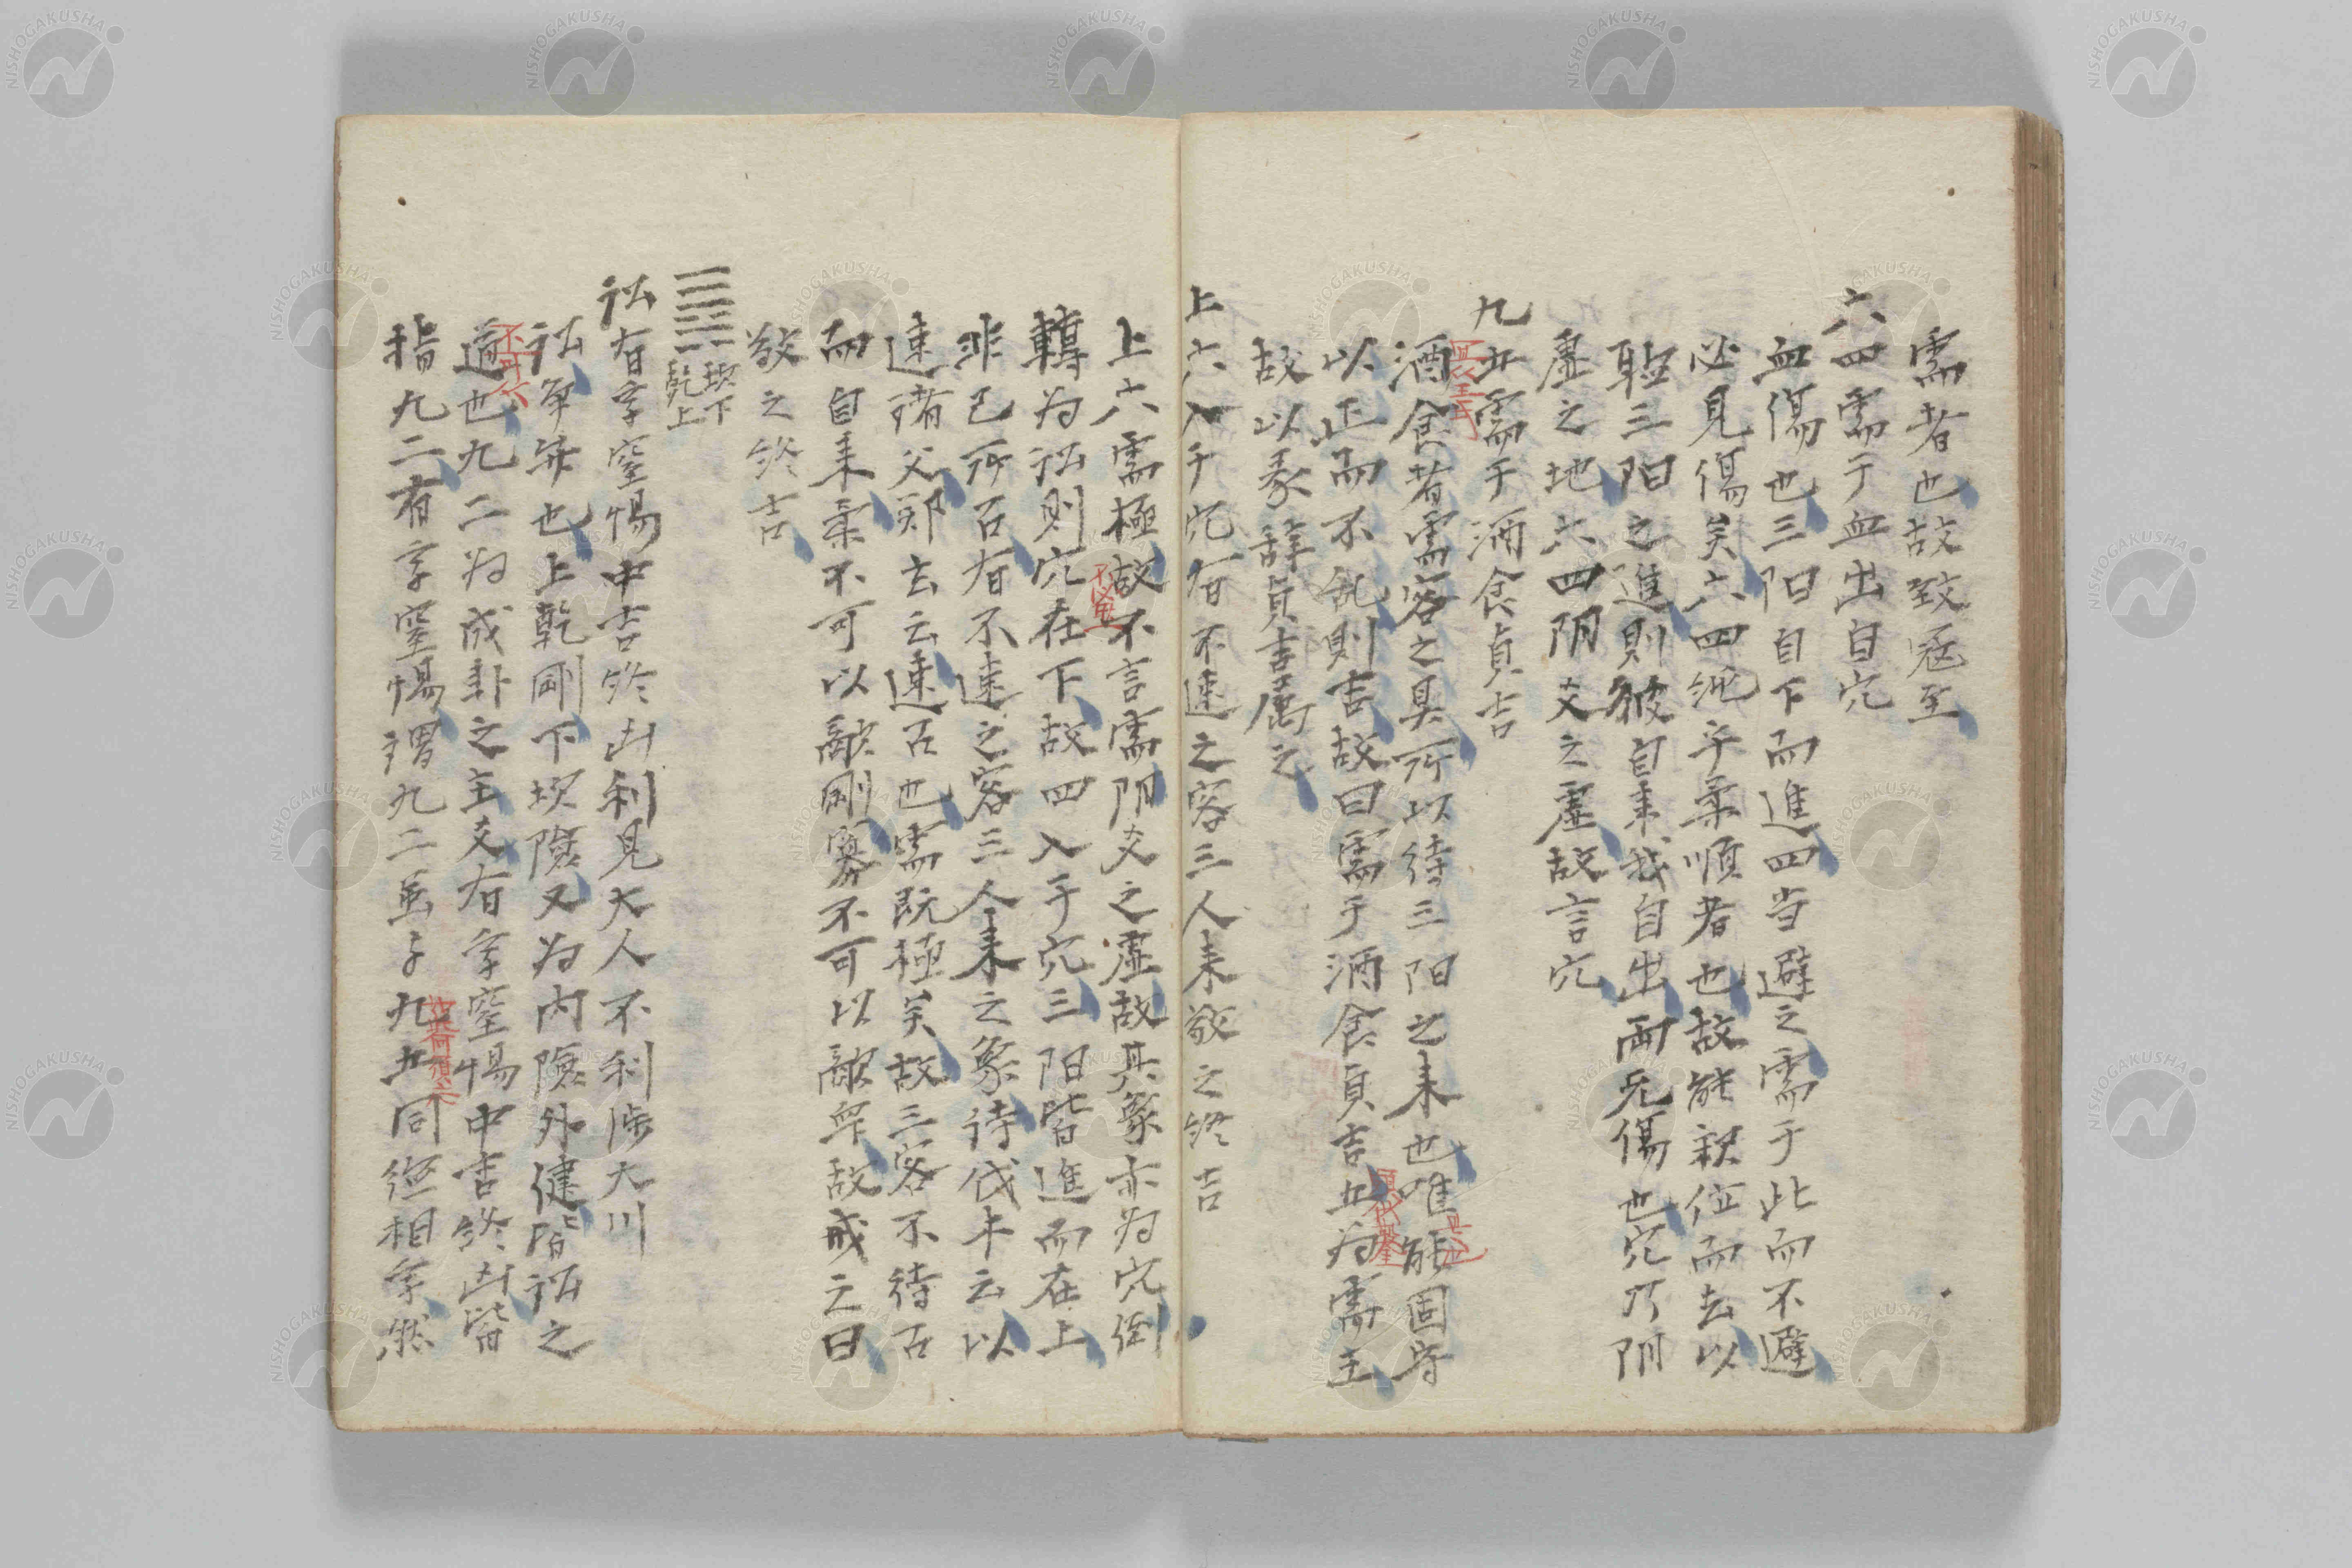 需者也故致寇至
六四需于血出自穴
血傷也三阳自下而進四当避之需于此而不避
必見傷矣六四純乎柔順者也故能釈位而去以
聴三阳之進則彼自来我自出両无傷也穴乃阴
虚之地六四阴爻之虚故言穴
九五需于酒食貞吉
酒食者需客之具所以待三阳之来也唯能固守
以正而不乱則吉故曰需于酒食貞吉五為需主
故以彖辞貞吉属之
上六入于穴有不速之客三人来敬之終吉
上六需極故不言需阴爻之虚故其象亦为穴倒
轉为訟則穴在下故四入于穴三阳皆進而在上
非已所召有不速之客三人来之象待伐卡云以
速諸父郑玄云速召也需既極矣故三客不待召
而自来柔不可以敵剛寡不可以敵众故戒之曰
敬之終吉
坎下
乾上
訟有孚窒惕中吉終凶利見大人不利涉大川
訟争辨也上乾剛下坎険又为内険外健皆訟之
道也九二为成卦之主爻有孚窒惕中吉終凶皆
指九二有孚窒惕謂九二盖与九五同德相孚然
NISHOGAKUSHA